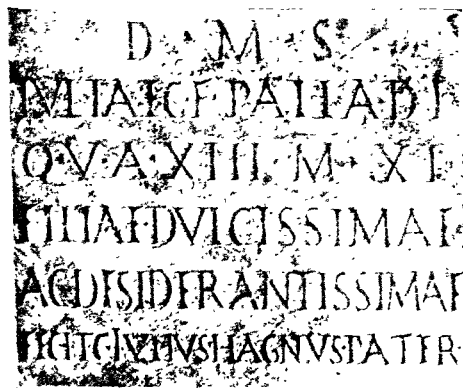 D · M · S
IVLIAE C F PALLADI
Q · V · A · XIII · M · XI
FILIAE DVLCISSIMAE
AC DESIDERANTISSIMAE
FECIT C IVLIVS HAGNVS PATER